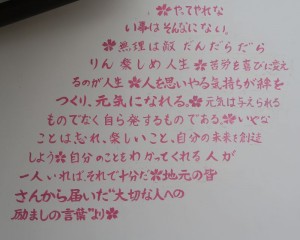 🌸やってやれな
い事はそんなにない。
🌸無理は敵 だんだらだら
りん 楽しめ人生🌸苦労を喜びに変え
るのが人生🌸人を思いやる気持ちが絆を
つくり、元気になれる。🌸元気は与えられる
ものでなく自ら発するものである。🌸いやな
ことは忘れ、楽しいこと、自分の未来を創造
しよう🌸自分のことをわかってくれる人が
一人いれば、それで十分だ🌸地元の皆
さんから届いた"大切な人への
励ましの言葉"より🌸